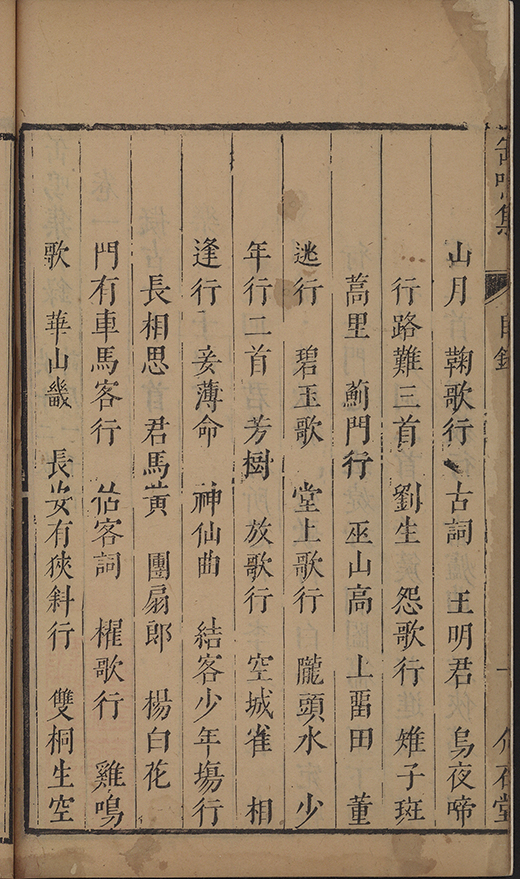 鳴集 目錄 一 石堂
山月 鞠歌行 古詞 王明君 烏夜啼
行路難三首 劉生 怨歌行 雉子斑
蒿里 薊門行 巫山高 上畱田 董
逃行 碧玉歌 堂上歌行 隴頭水 少
年行二首 芳樹 放歌行 空城雀 相
逢行 妾薄命 神仙曲 結客少年塲行
長相思 君馬黃 團扇郎 楊白花
門有車馬客行 估客詞 櫂歌行 雞鳴
歌 華山畿 長安有狹斜行 雙桐生空